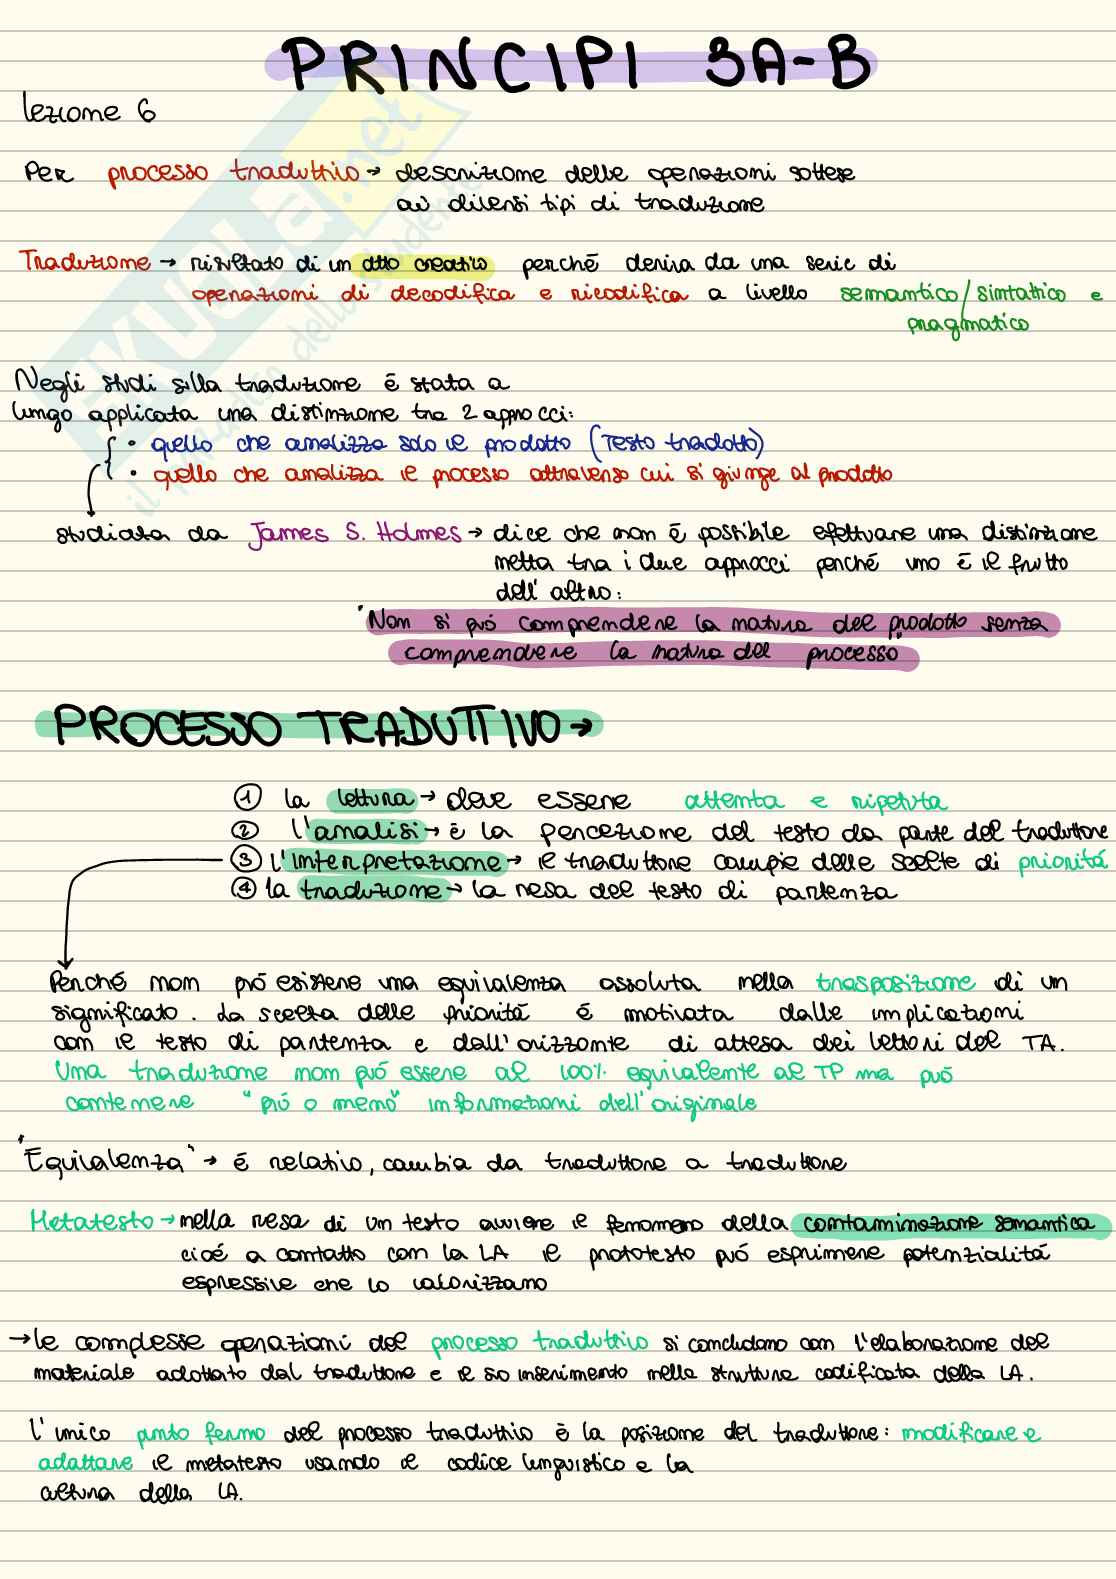 PRINCIPI 3A-B
lezione 6
Per processo traduttivo → descrizione delle operazioni sottese
ai diversi tipi di traduzione
Traduzione → risultato di un atto creativo perché deriva da una serie di
operazioni di decodifica e ricodifica a livello semantico/sintattico e
pragmatico
Negli studi sulla traduzione è stata a
lungo applicata una distinzione tra 2 approcci:
• quello che analizza solo il prodotto (Testo tradotto)
• quello che analizza il processo attraverso cui si giunge al prodotto
studiata da James S. Holmes → dice che non è possibile effettuare una distinzione
netta tra i due approcci perché uno è il frutto
dell'altro:
"Non si può comprendere la natura del prodotto senza
comprendere la natura del processo"
PROCESSO TRADUTTIVO →
① la lettura → deve essere attenta e ripetuta
② l'analisi → è la percezione del testo da parte del traduttore
③ l'interpretazione → il traduttore compie delle scelte di priorità
④ la traduzione → la resa del testo di partenza
Perché non può esistere una equivalenza assoluta nella trasposizione di un
significato. La scelta delle priorità è motivata dalle implicazioni
con il testo di partenza e dall'orizzonte di attesa dei lettori del TA.
Una traduzione non può essere al 100% equivalente al TP ma può
contenere "più o meno" informazioni dell'originale
"Equivalenza" → è relativo, cambia da traduttore a traduttore
Metatesto → nella resa di un testo avviene il fenomeno della contaminazione semantica
cioè a contatto con la LA il prototesto può esprimere potenzialità
espressive che lo valorizzano
→ le complesse operazioni del processo traduttivo si concludono con l'elaborazione del
materiale adottato dal traduttore e il suo inserimento nella struttura codificata della LA.
L'unico punto fermo del processo traduttivo è la posizione del traduttore: modificare e
adattare il metatesto usando il codice linguistico e la
cultura della LA.
SKUOLA.net
il paradiso dello studente